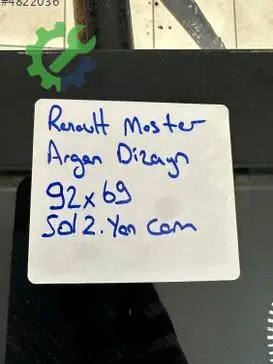 #4822036
Renault Master
Argan Dizayn
92x69
Sol 2. Yan cam